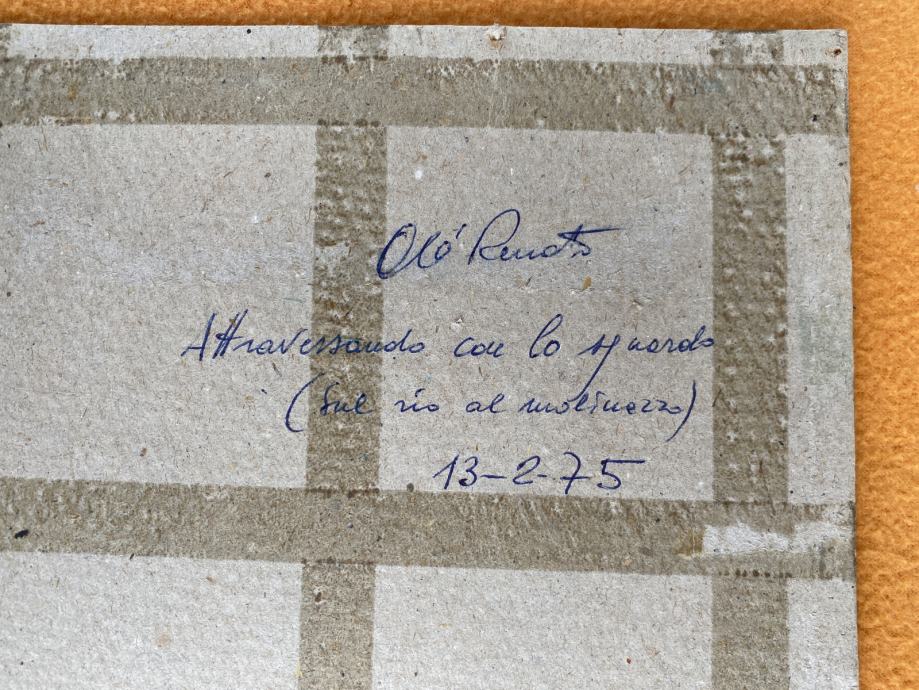 Oló Renato
Attraversando con lo sguardo
(Sul rio al molinazzo)
13-2-75